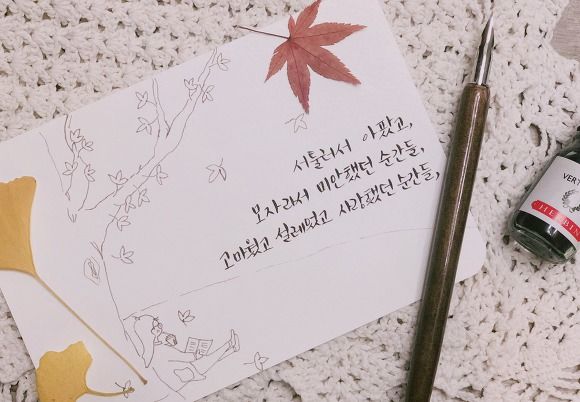 서툴러서 아팠고,
모자라서 미안했던 순간들,
고마웠고 설레였고 사랑했던 순간들,
VERT
HERBIN